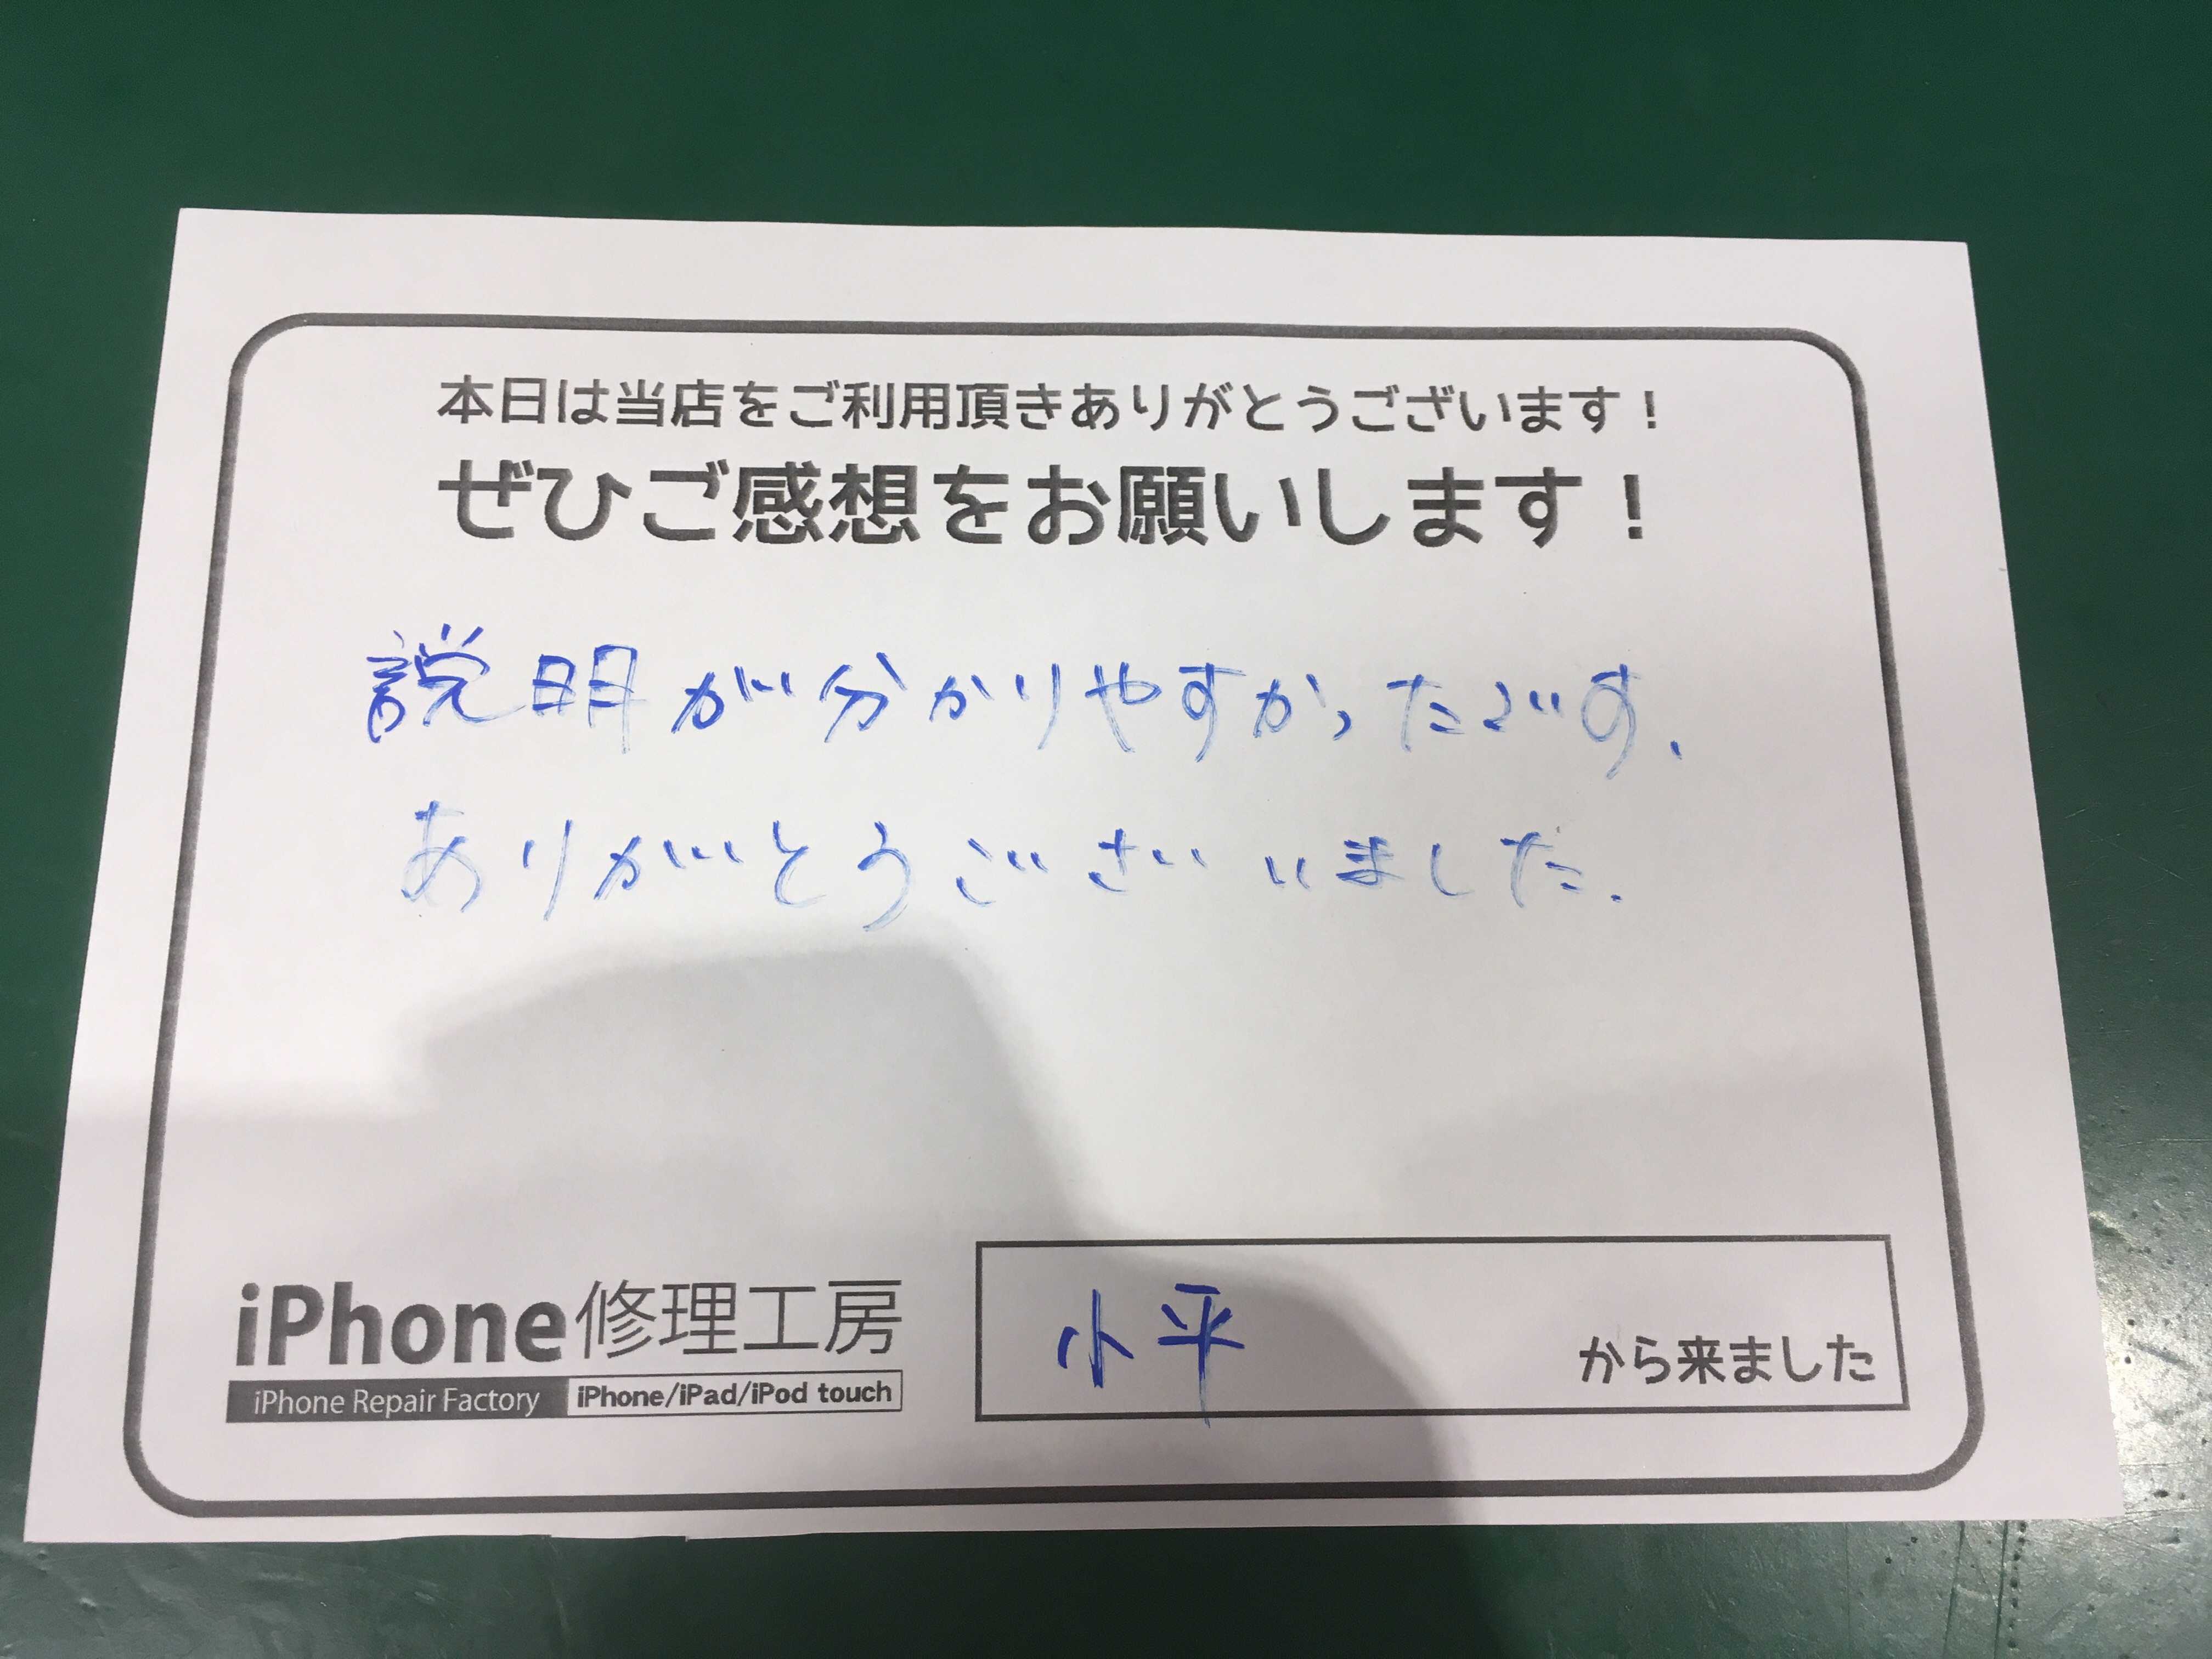 本日は当店をご利用頂きありがとうございます！
ぜひご感想をお願いします！
説明が分かりやすかったです.
ありがとうございました.
iPhone修理工房
iPhone Repair Factory iPhone/iPad/iPod touch
小平 から来ました